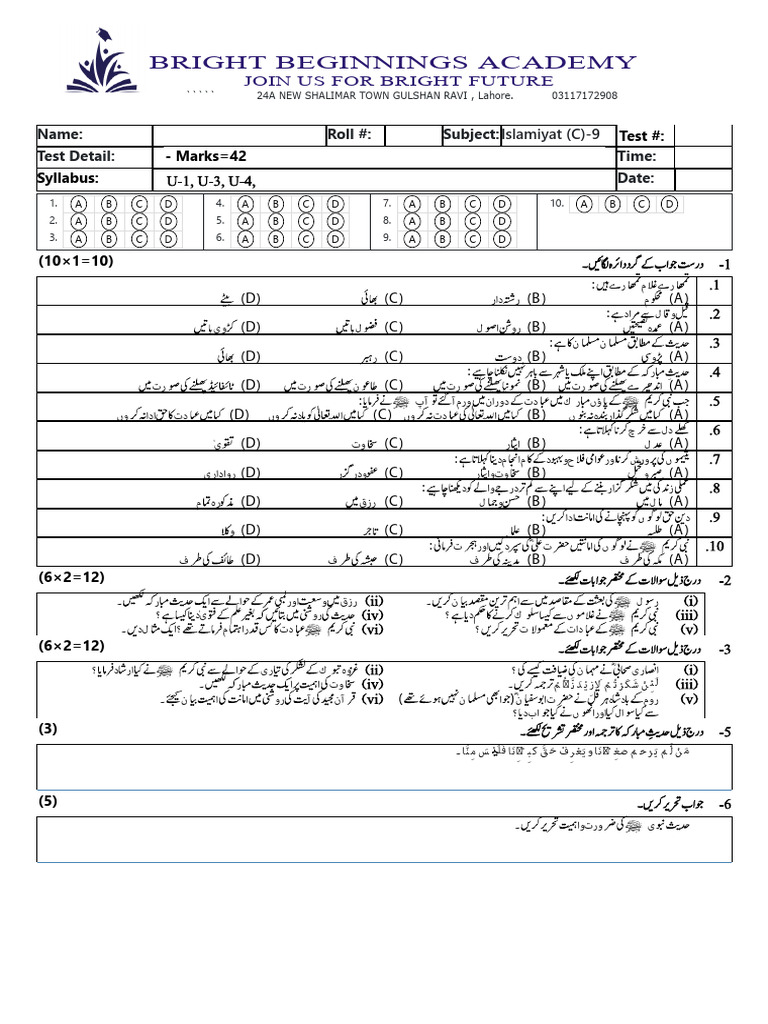 BRIGHT BEGINNINGS ACADEMY
JOIN US FOR BRIGHT FUTURE
` ` ` ` `
24A NEW SHALIMAR TOWN GULSHAN RAVI , Lahore. 03117172908
Name: Roll #: Subject: Islamiyat (C)-9 Test #:
Test Detail: - Marks=42 Time:
Syllabus: U-1, U-3, U-4, Date:
1. A B C D 4. A B C D 7. A B C D 10. A B C D
2. A B C D 5. A B C D 8. A B C D
3. A B C D 6. A B C D 9. A B C D
1- درست جواب کے گرد دائرہ لگائیں۔ (10×1=10)
1. تمھارے غلام تمھارے ہیں:
(A) محکوم (B) رشتہ دار (C) بھائی (D) بیٹے
2. قیل و قال سے مراد ہے:
(A) عمدہ نصیحتیں (B) روشن اصول (C) فضول باتیں (D) کڑوی باتیں
3. حدیث کے مطابق مسلمان مسلمان کا ہے:
(A) پڑوسی (B) دوست (C) رہبر (D) بھائی
4. حدیث مبارکہ کے مطابق اپنے ملک یا شہر سے باہر نہیں نکلنا چاہیے:
(A) اندھیرے پھیلنے کی صورت میں (B) نمونیا پھیلنے کی صورت میں (C) طاعون پھیلنے کی صورت میں (D) ٹائیفائیڈ پھیلنے کی صورت میں
5. جب نبی کریم ﷺ کے پاؤں مبارک میں عبادت کے دوران میں ورم آ گئے تو آپ ﷺ نے فرمایا:
(A) کیا میں شکر گذار بندہ نہ بنوں (B) کیا میں اللہ تعالیٰ کی عبادت نہ کروں (C) کیا میں اللہ تعالیٰ کو یاد نہ کروں (D) کیا میں عبادت کا حق ادا نہ کروں
6. کھلے دل سے خرچ کرنا کہلاتا ہے:
(A) عدل (B) ایثار (C) سخاوت (D) تقویٰ
7. یتیموں کی پرورش کرنا اور عوامی فلاح و بہبود کے کام انجام دینا کہلاتا ہے:
(A) صبر و تحمل (B) سخاوت و ایثار (C) عفو و درگزر (D) رواداری
8. عملی زندگی میں شکر گزار بننے کے لیے اپنے سے کم تر درجے والے کو دیکھنا چاہیے:
(A) مال میں (B) حسن و جمال (C) رزق میں (D) مذکورہ تمام
9. دین حق لوگوں کو پہنچانے کی امانت ادا کریں:
(A) طلبہ (B) علما (C) تاجر (D) وکلا
10. نبی کریم ﷺ نے لوگوں کی امانتیں حضرت علیؓ کی سپرد کیں اور ہجرت فرمائی:
(A) مکہ کی طرف (B) مدینہ کی طرف (C) حبشہ کی طرف (D) طائف کی طرف
2- درج ذیل سوالات کے مختصر جوابات لکھئے۔ (6×2=12)
(i) رسول ﷺ کی بعثت کے مقاصد میں سے اہم ترین مقصد بیان کریں۔ (ii) رزق میں وسعت اور لمبی عمر کے حوالے سے ایک حدیث مبارکہ لکھیں۔
(iii) نبی کریم ﷺ نے غلاموں سے کیسا سلوک کرنے کا حکم دیا ہے ؟ (iv) حدیث کی روشنی میں بتائیں کہ بغیر علم کے فتویٰ دینا کیسا ہے؟
(v) نبی کریم ﷺ کے عبادات کے معمولات تحریر کریں؟ (vi) نبی کریم ﷺ عبادت کا کس قدر اہتمام فرماتے تھے؟ ایک مثال دیں۔
3- درج ذیل سوالات کے مختصر جوابات لکھئے۔ (6×2=12)
(i) انصاری صحابی نے مہمان کی ضیافت کیسے کی ؟ (ii) غزوہ تبوک کے لشکر کی تیاری کے حوالے سے نبی کریم ﷺ نے کیا ارشاد فرمایا؟
(iii) لَئِنْ شَكَرْتُمْ لَازِيْدَنَّكُمْ ترجمہ کریں۔ (iv) سخاوت کی اہمیت پر ایک حدیث مبارکہ لکھیں۔
(v) روم کے بادشاہ ہرقل نے حضرت ابوسفیانؓ (جو ابھی مسلمان نہیں ہوئے تھے) (vi) قرآن مجید کی آیت کی روشنی میں امانت کی اہمیت بیان کیجئے۔
سے کیا سوال کیا اور انھوں نے کیا جواب دیا؟
5- درج ذیل حدیث مبارکہ کا ترجمہ اور مختصر تشریح لکھئے۔ (3)
مَنْ لَّمْ يَرْحَمْ صَغِيْرَنَا وَيَعْرِفْ حَقَّ كَبِيْرِنَا فَلَيْسَ مِنَّا۔
6- جواب تحریر کریں۔ (5)
حدیث نبوی ﷺ کی ضرورت و اہمیت تحریر کریں۔